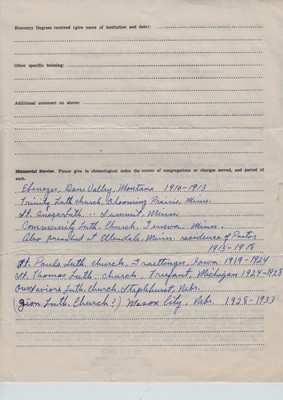 Honorary Degrees received (give name of institution and date):
Other specific training:
Additional comment on above:
Ministerial Service. Please give in chronological order the names of congregations or charges served, and period of
each.
Ebenezer, Dane Valley, Montana 1910-1913
Trinity Luth church, Blooming Prairie, Minn.
St. Luth " Summit, Minn.
Community Luth. Church, Geneva, Minn.
Also preached at Ellendale, Minn. residence of Pastor
1913-1918
St. Pauls Luth church, Graettinger, Iowa 1919-1924
St. Thomas Luth. church, Trufant, Michigan 1924-1928
Our Saviors Luth. Church, Nebr.
(Zion Luth. Church?) Mason City, Nebr. 1928-1933